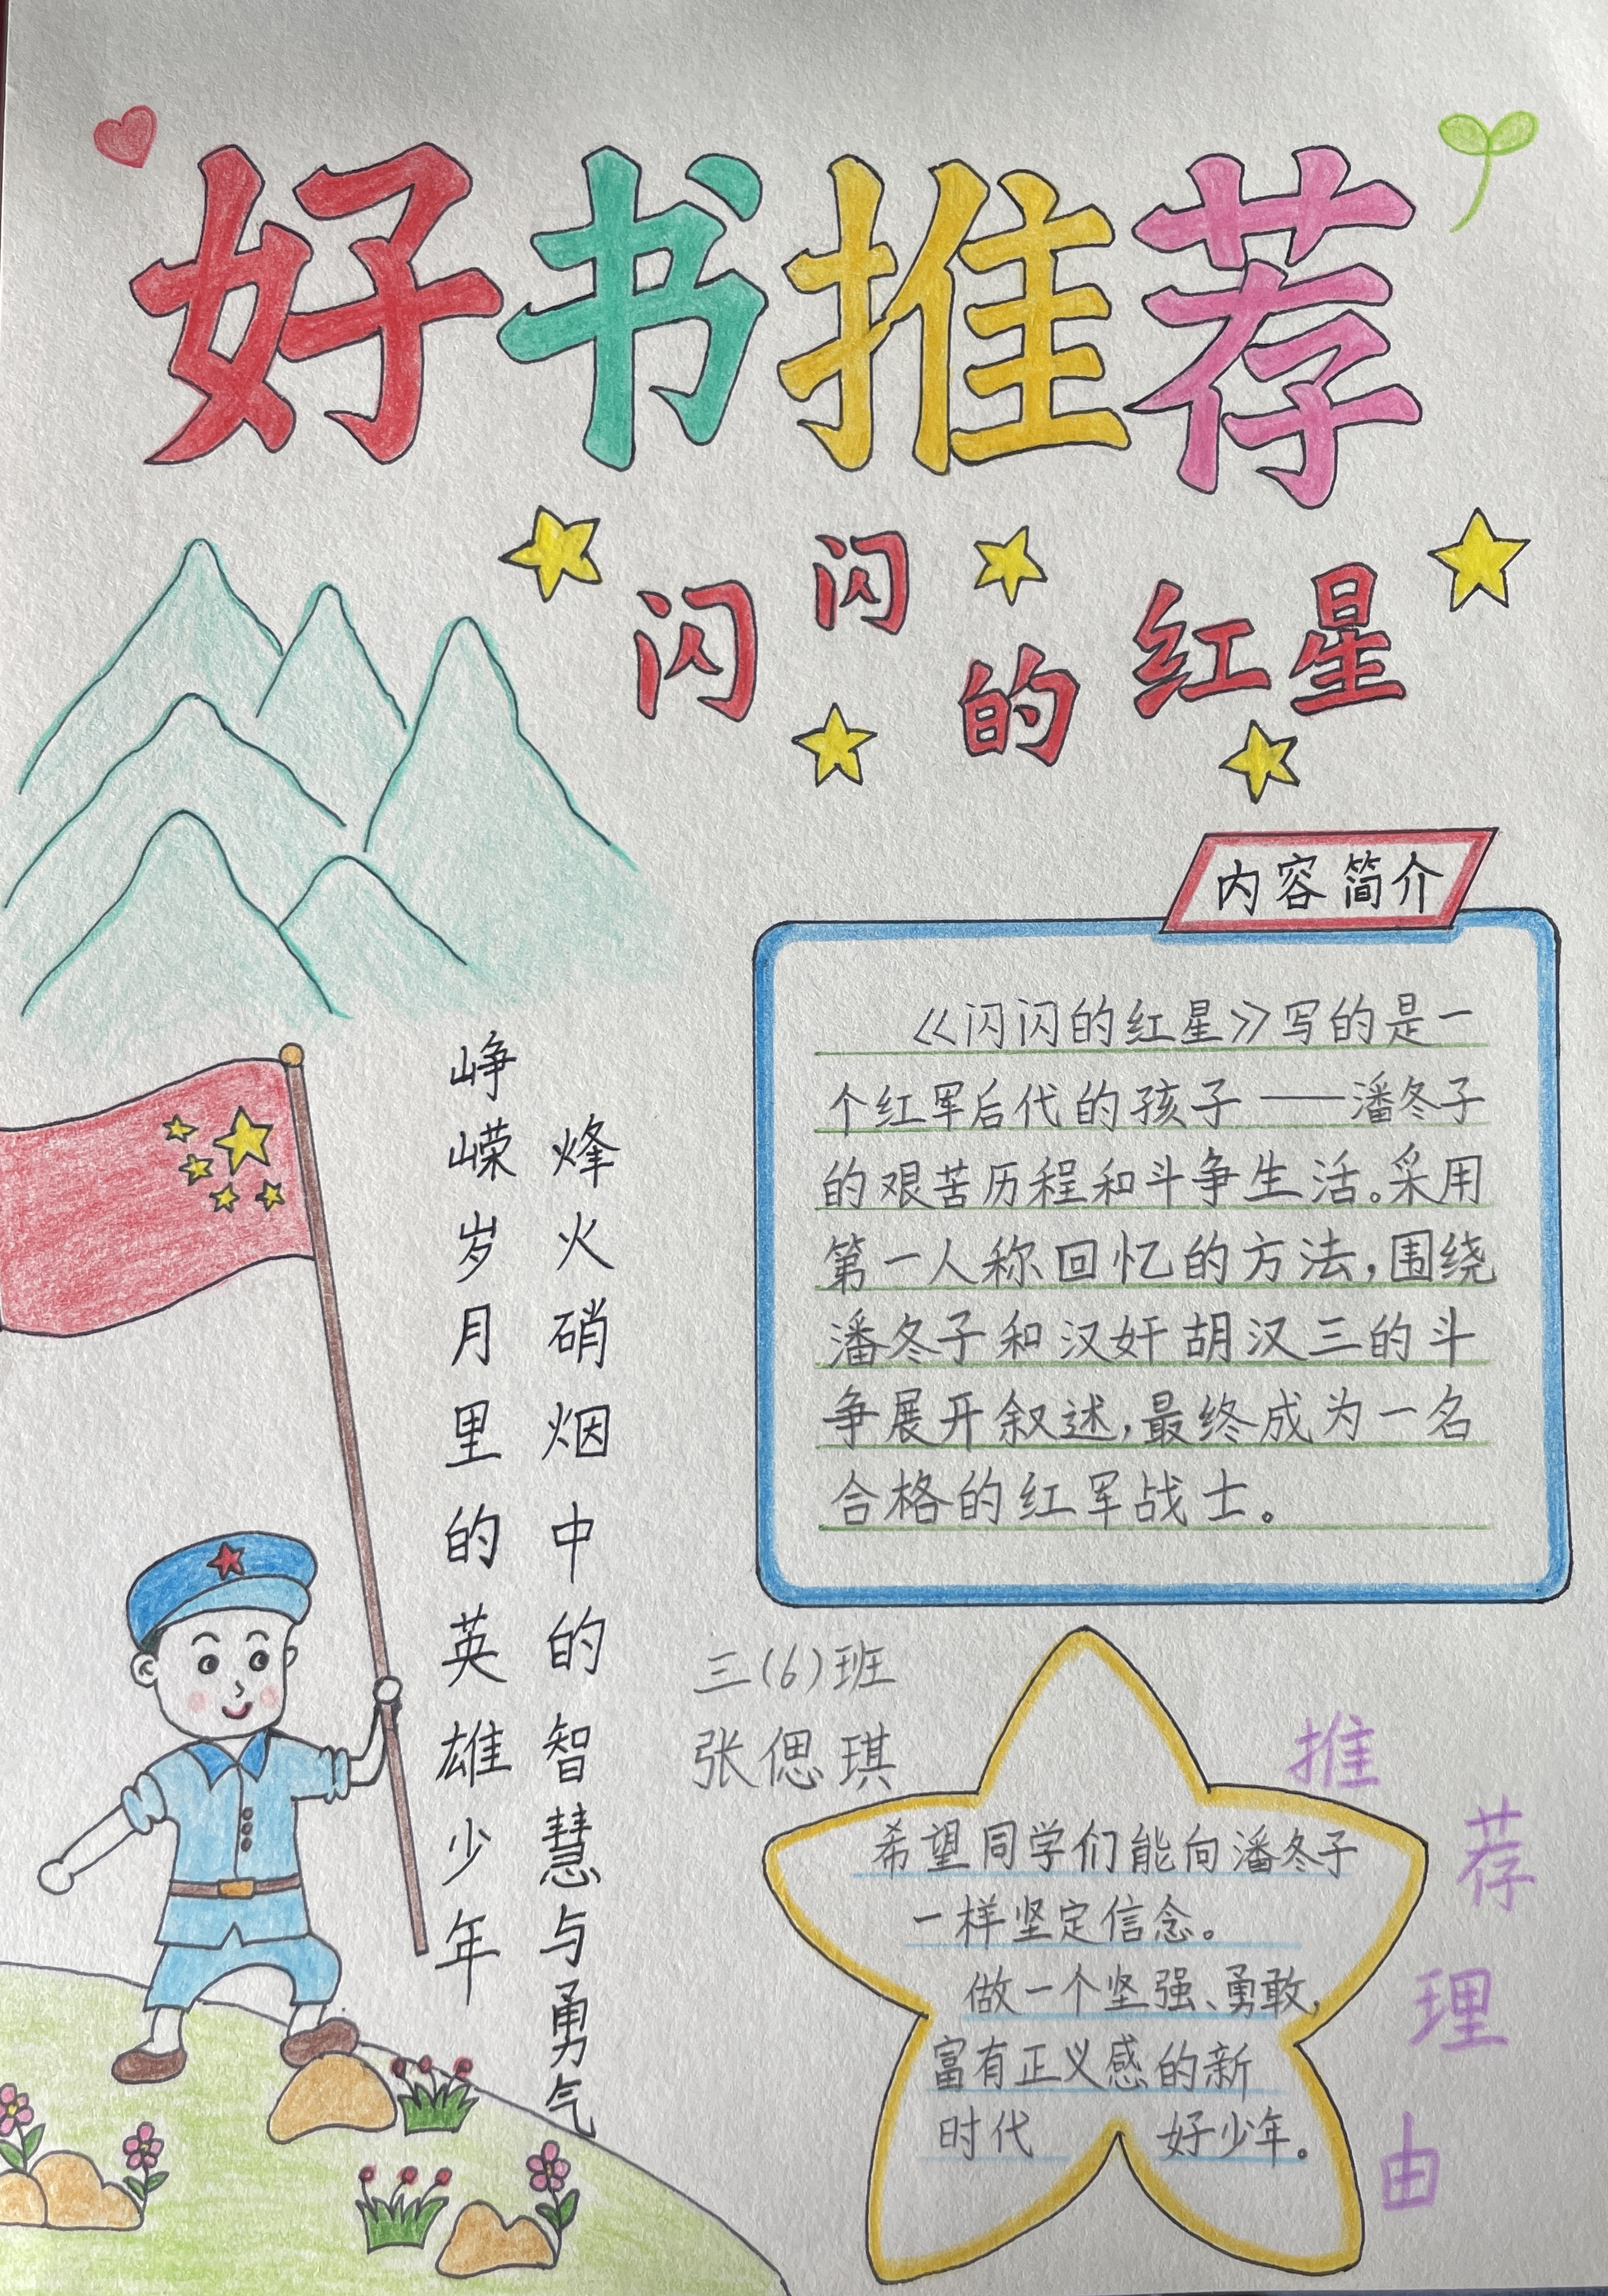 好书推荐
闪闪的红星
内容简介
《闪闪的红星》写的是一
个红军后代的孩子——潘冬子
的艰苦历程和斗争生活。采用
第一人称回忆的方法，围绕
潘冬子和汉奸胡汉三的斗
争展开叙述，最终成为一名
合格的红军战士。
峥嵘岁月里的英雄少年
烽火硝烟中的智慧与勇气
三(6)班
张偲琪
推荐理由
希望同学们能向潘冬子
一样坚定信念。
做一个坚强、勇敢，
富有正义感的新
时代 好少年。